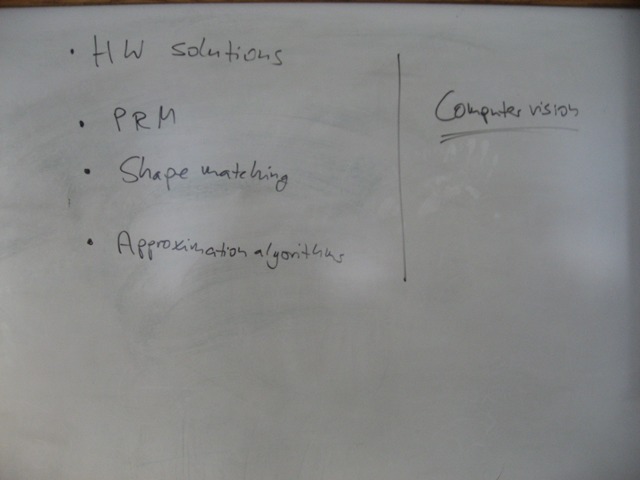 • HW solutions
• PRM
• Shape matching
• Approximation algorithms
Computer vision